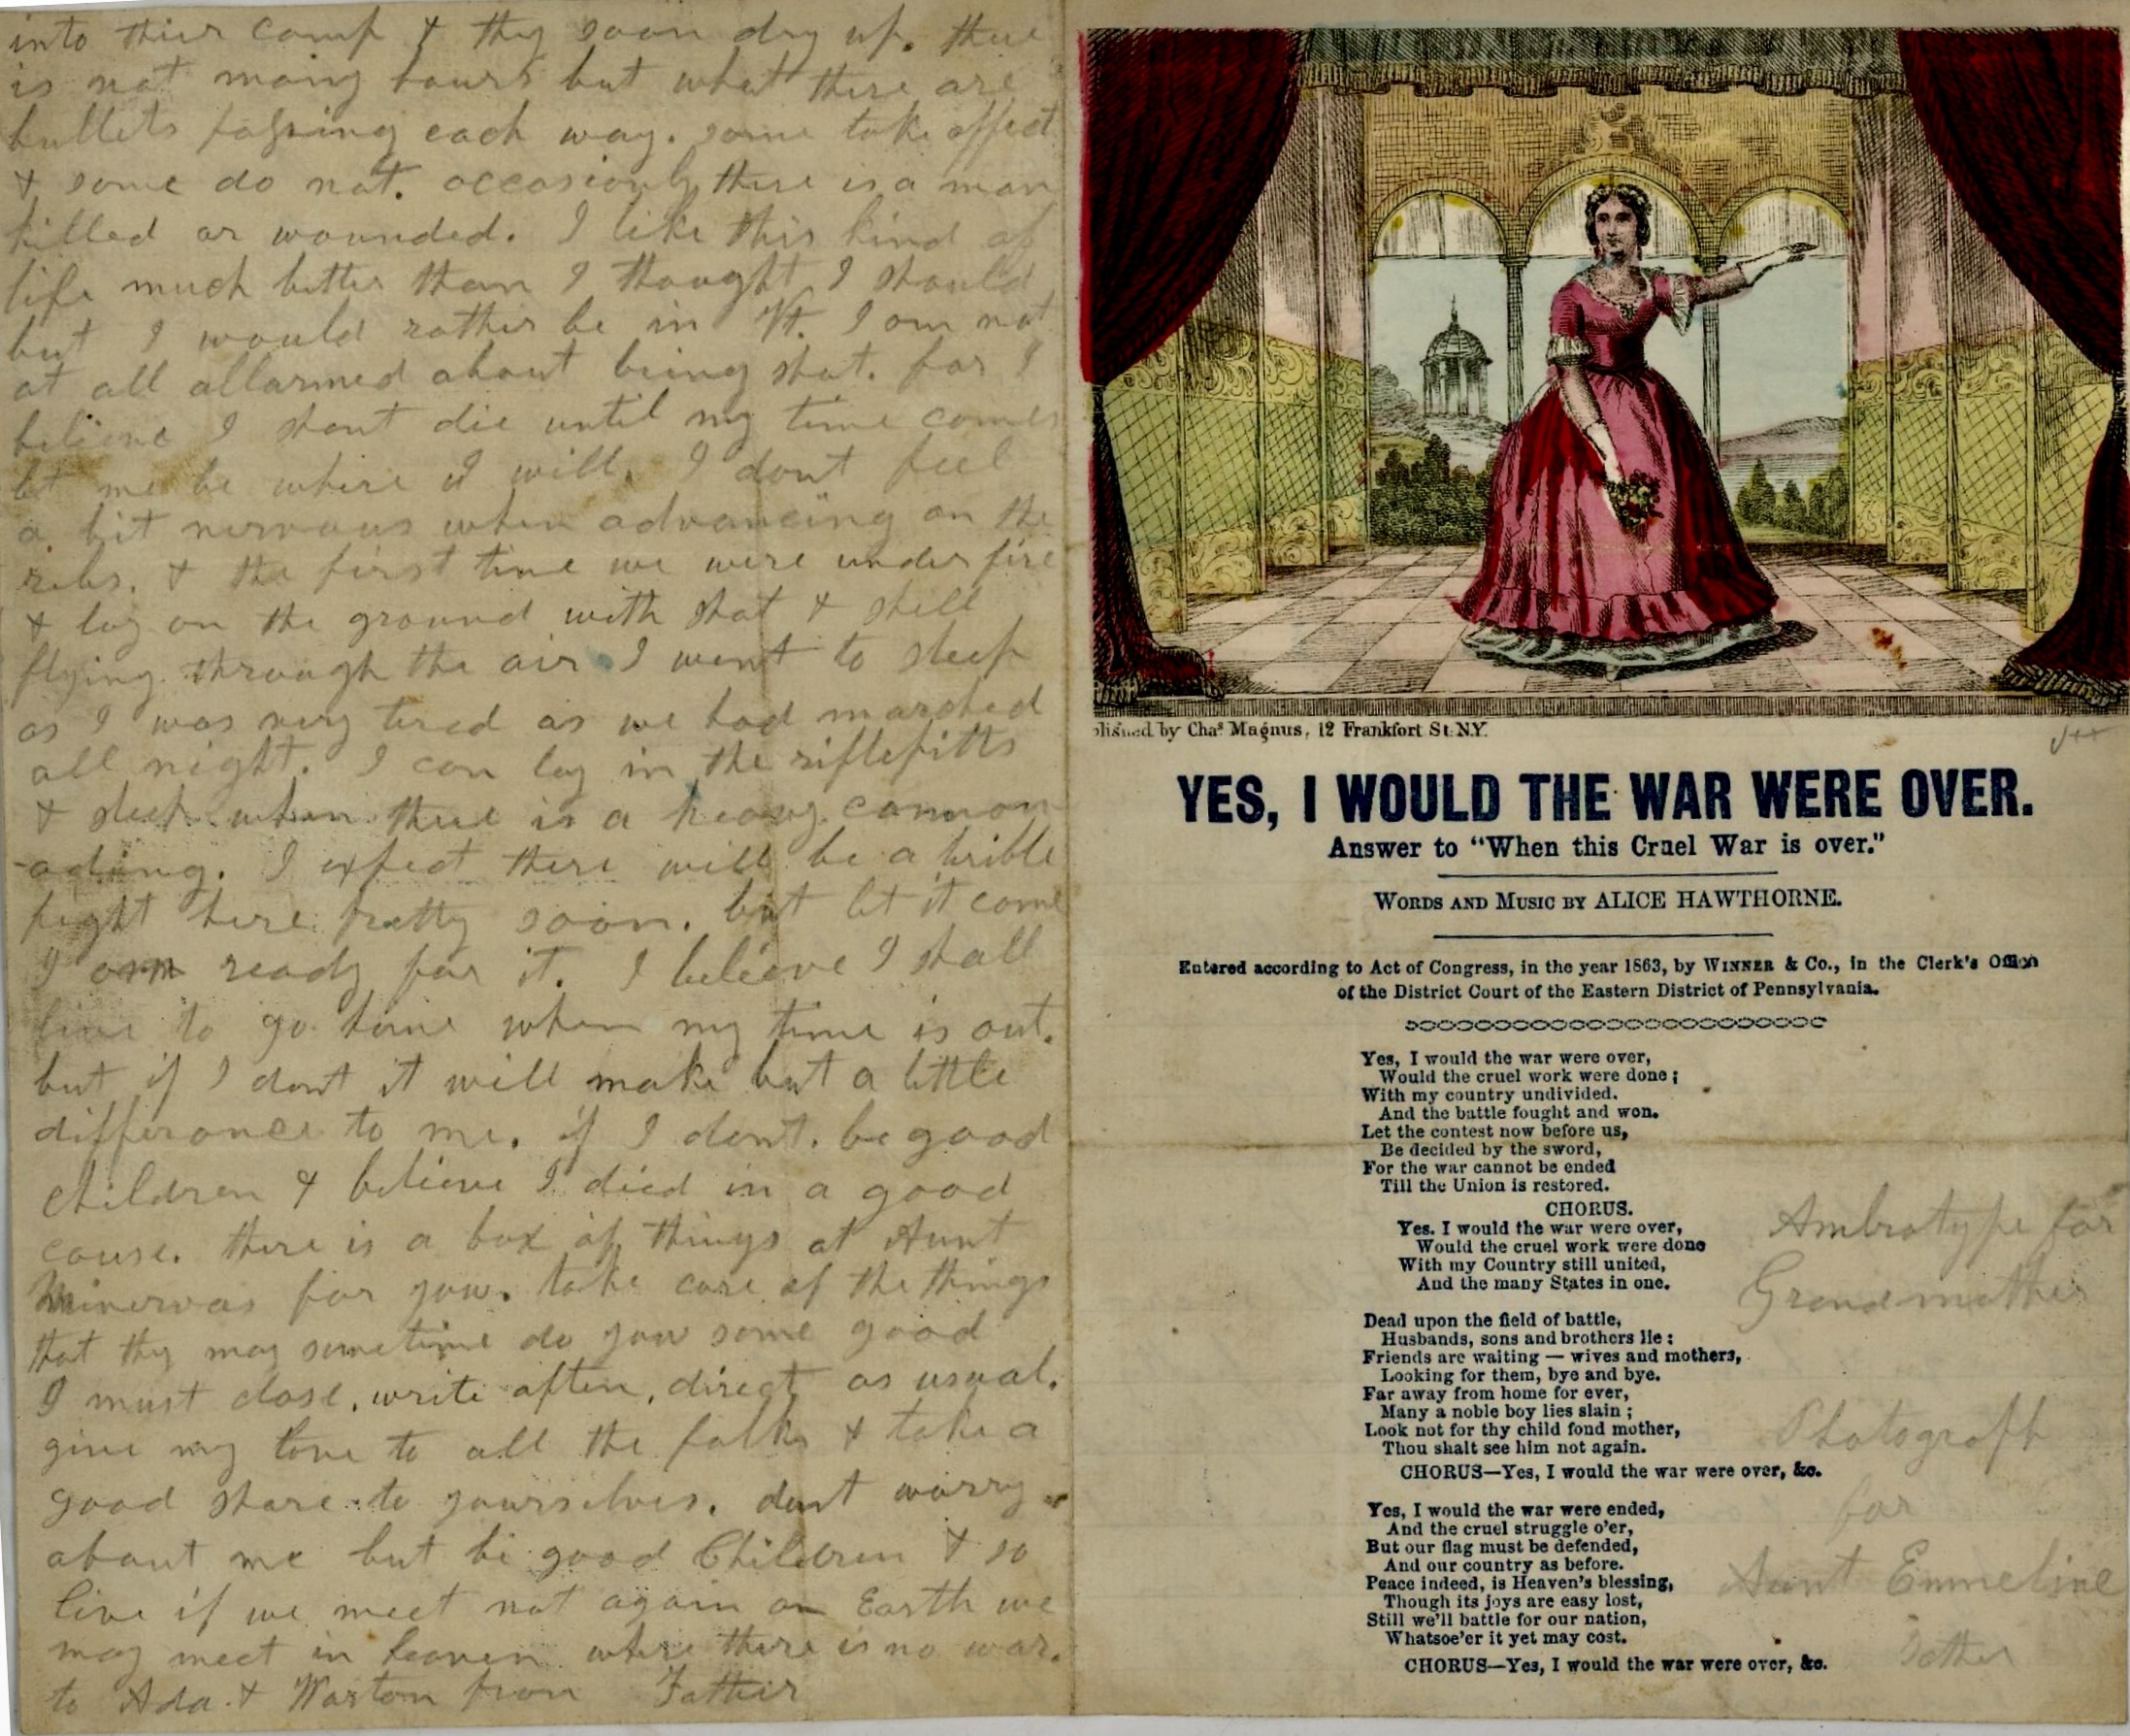 into thier camp & thy soon dry up. thue
is not many hours but what there are
bullets passing each way. some take affect
& some do not. occasionly there is a man
killed or wounded. I like this kind of
life much better than I thought I should
but I would rather be in Vt. I am not
at all allarmed about being shot. for I
believe I shant die until my time comes
let me be where I will. I dont feel
a bit nervous when advancing on the
rebs. & the first time we were under fire
& lay on the ground with shot & shell
flying through the air I went to sleep
as I was very tired as we had marched
all night. I can lay in the riflepitts
& sleep when thue is a heavy cannon
-ading. I expect there will be a trible
fight here pretty soon. but let it come
I am ready for it. I believe I shall
live to go home when my time is out.
but if I dont it will make but a little
differance to me. if I dont. be good
children & believe I died in a good
cause. there is a box of things at Aunt
Minervas for you. take care of the things
that thy may sometime do you some good
I must close. write often, direct as usual.
give my love to all the folks & take a
good share to yourselves. dont worry
about me but be good Children & so
live if we meet not again on Earth we
may meet in heaven where there is no war.
to Ada & Warton from Father
blished by Chaˢ Magnus, 12 Frankfort St. N.Y.
YES, I WOULD THE WAR WERE OVER.
Answer to "When this Cruel War is over."
WORDS AND MUSIC BY ALICE HAWTHORNE.
Entered according to Act of Congress, in the year 1863, by WINNER & CO., in the Clerk's Office
of the District Court of the Eastern District of Pennsylvania.
Yes, I would the war were over,
Would the cruel work were done;
With my country undivided.
And the battle fought and won.
Let the contest now before us,
Be decided by the sword,
For the war cannot be ended
Till the Union is restored.
CHORUS.
Yes. I would the war were over,
Would the cruel work were done
With my Country still united,
And the many States in one.
Dead upon the field of battle,
Husbands, sons and brothers lie:
Friends are waiting — wives and mothers,
Looking for them, bye and bye.
Far away from home for ever,
Many a noble boy lies slain;
Look not for thy child fond mother,
Thou shalt see him not again.
CHORUS—Yes, I would the war were over, &c.
Yes, I would the war were ended,
And the cruel struggle o'er,
But our flag must be defended,
And our country as before.
Peace indeed, is Heaven's blessing,
Though its joys are easy lost,
Still we'll battle for our nation,
Whatsoe'er it yet may cost.
CHORUS—Yes, I would the war were over, &c.
Ambrotype for
Grandmother
Photograph
for
Aunt Emmeline
Father